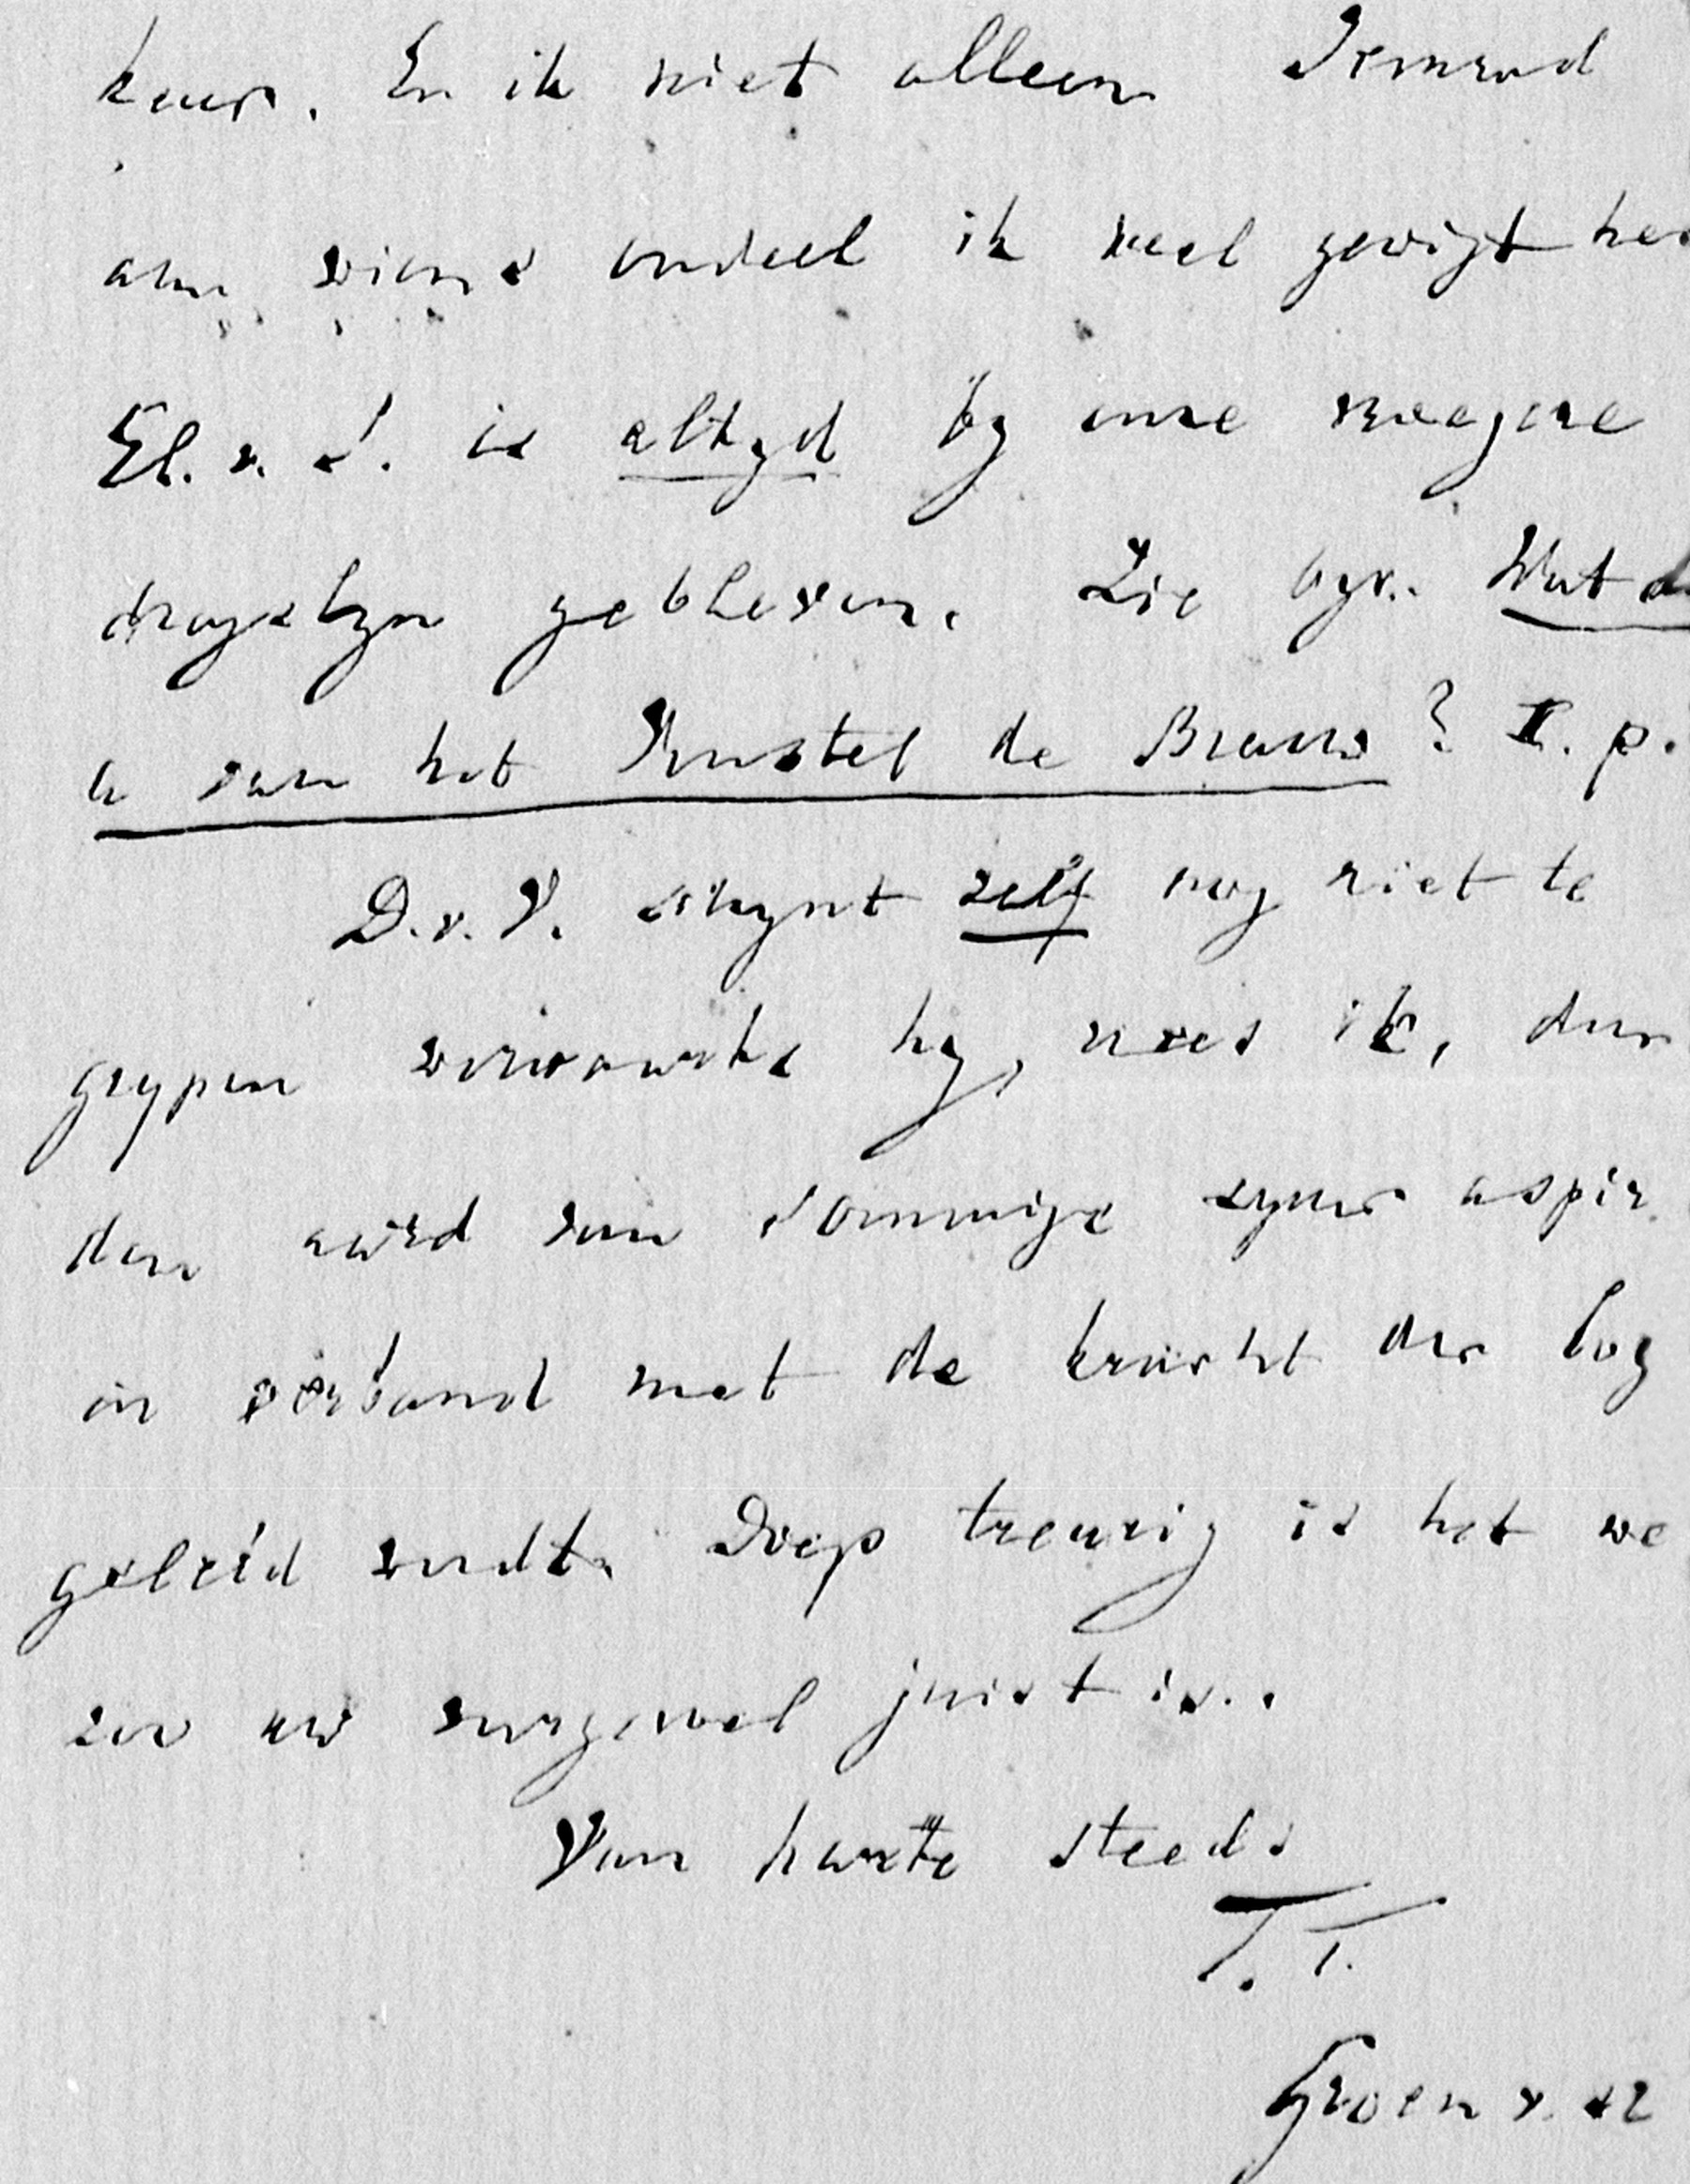 keur. En ik niet alleen Iemand
aan wiens oordeel ik veel gewigt he
El. v. S. is altyd by onze vroegere
draaglyn gebleven. Zie byv. Wat d
u van het Kinstel de Brauw? I. p.
D. v. V. schynt zelf nog niet te
grypen verwarde hy, vrees ik, dan
den aard van sommige zyner aspir
in verband met de kracht der log
geleid wordt. Diep treurig is het we
zoo uw vurgevoel juist is.
Van harte steeds
T. T.
Groen v.